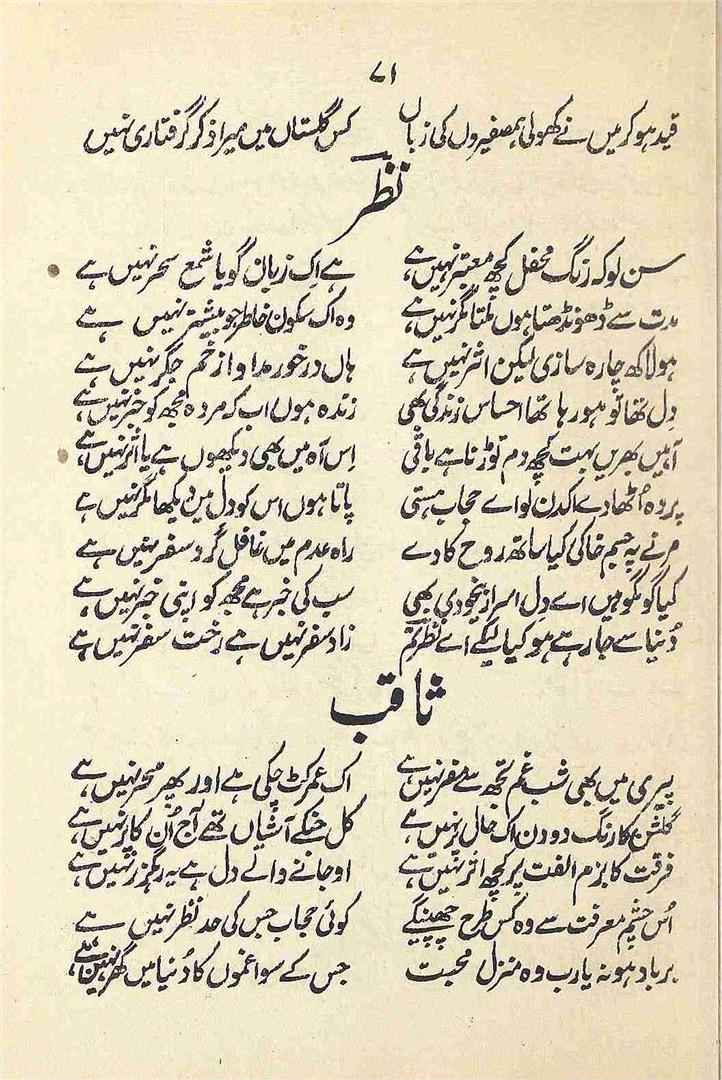 ۷۱
قید ہو کر میں نے کھولی ہمصفیروں کی زباں کس گلستاں میں میرا ذکر گرفتاری نہیں
نظر
سن لو کہ رنگ محفل کچھ معتبر نہیں ہے ہے اِک زبان گویا شمع سحر نہیں ہے
مدت سے ڈھونڈھتا ہوں ملتا مگر نہیں ہے وہ اک سکون خاطر جو بیشتر نہیں ہے
ہو لاکھ چارہ سازی لیکن اثر نہیں ہے ہاں درخور مداوا زخم جگر نہیں ہے
دِل تھا تو ہو رہا تھا احساس زندگی بھی زندہ ہوں اب کہ مردہ مجھ کو خبر نہیں ہے
آہیں بھریں بہت کچھ دم توڑنا ہے باقی اِس آہ میں بھی دیکھوں ہے یا اثر نہیں ہے
پردہ اُٹھا دے اکدن لو اے حجاب ہستی پاتا ہوں اس کو دل میں دیکھا مگر نہیں ہے
مرنے پہ جسم خاکی کیا ساتھ روح کا دے راہ عدم میں غافل گرد سفر نہیں ہے
کیا گومگو میں اے دِل اسراز بیخودی بھی سب کی خبر ہے مجھ کو اپنی خبر نہیں ہے
دُنیا سے جا رہے ہو کیا لیکے اے نظر تم زاد سفر نہیں ہے رخت سفر نہیں ہے
ثاقب
پیری میں بھی شب غم تجھ سے مفر نہیں ہے اک عمر کٹ چکی ہے اور پھر سحر نہیں ہے
گلشن کا رنگ دو دن اک حال پر نہیں ہے کل جنکے آشیاں تھے آج اُن کا پر نہیں ہے
فرقت کا بزم الفت پر کچھ اثر نہیں ہے او جانے والے دل ہے یہ رہگزر نہیں ہے
اُس چشم معرفت سے وہ کس طرح چھپینگے کوئی حجاب جس کی حد نظر نہیں ہے
برباد ہو نہ یارب وہ منزل محبت جس کے سوا غموں کا دُنیا میں گھر نہیں ہے